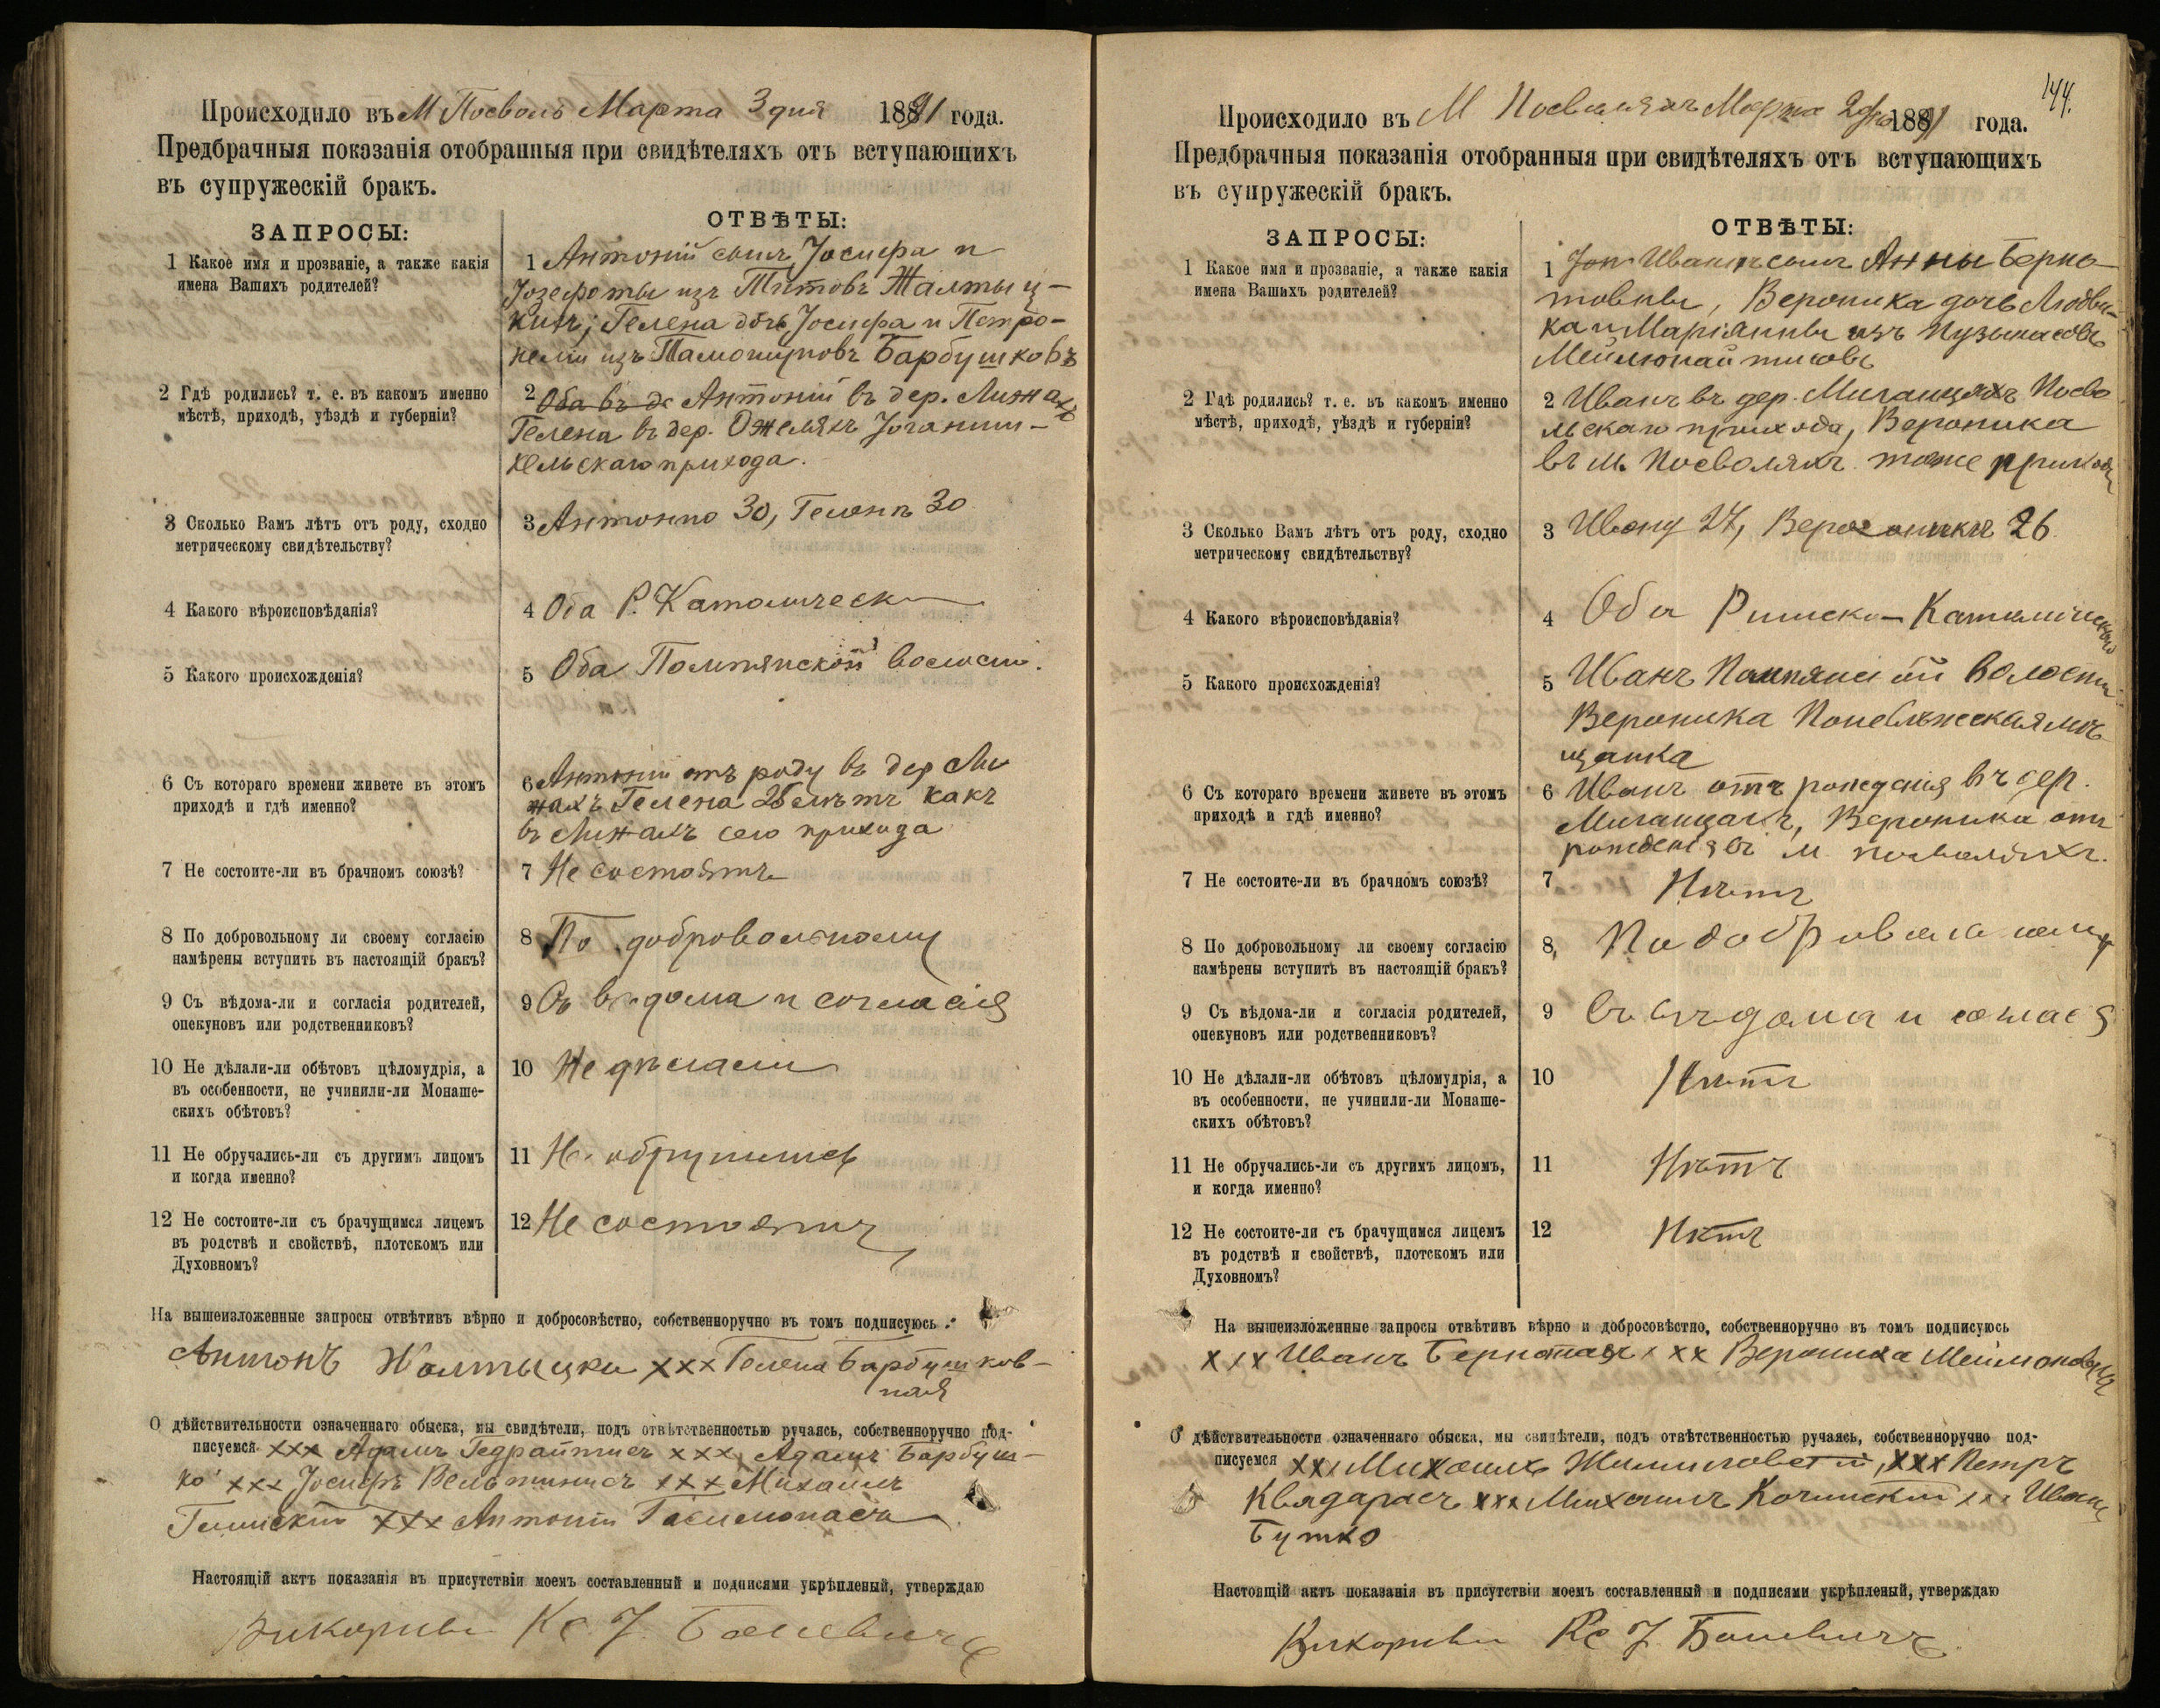 Происходило въ М Посволь Марта 3 дня 1891 года.
Предбрачныя показанія отобранныя при свидѣтеляхъ отъ вступающихъ
въ супружескій бракъ.
ЗАПРОСЫ:
ОТВѢТЫ:
1 Какое имя и прозваніе, а также какія
имена Вашихъ родителей?
1 Антоній сынъ Іосифа и
Іозефоты изъ Титовъ Жалтыц-
кихъ; Гелена дочь Іосифа и Петро-
нели изъ Барбушковъ
2 Гдѣ родились? т. е. въ какомъ именно
мѣстѣ, приходѣ, уѣздѣ и губерніи?
2 Оба въ де Антоній въ дер. Лижахъ
Гелена въ дер. Ожеляхъ Іоганиш-
кельскаго прихода.
3 Сколько Вамъ лѣтъ отъ роду, сходно
метрическому свидѣтельству?
3 Антонію 30, Геленѣ 30
4 Какого вѣроисповѣданія?
4 Оба Р. Католическ
5 Какого происхожденія?
5 Оба Помпянской волости.
6 Съ котораго времени живете въ этомъ
приходѣ и гдѣ именно?
6 Антоній отъ роду въ дер Ли
жахъ Гелена 25 лѣтъ какъ
въ Лижахъ сего прихода
7 Не состоите-ли въ брачномъ союзѣ?
7 Не состоятъ
8 По добровольному ли своему согласію
намѣрены вступить въ настоящій бракъ?
8 По добровольному
9 Съ вѣдома-ли и согласія родителей,
опекуновъ или родственниковъ?
9 Съ вѣдома и согласія
10 Не дѣлали-ли обѣтовъ цѣломудрія, а
въ особенности, не учинили-ли Монаше-
скихъ обѣтовъ?
10 Не дѣлали
11 Не обручались-ли съ другимъ лицомъ
и когда именно?
11 Не обручились
12 Не состоите-ли съ брачущимся лицемъ
въ родствѣ и свойствѣ, плотскомъ или
Духовномъ?
12 Не состоятъ
На вышеизложенные запросы отвѣтивъ вѣрно и добросовѣстно, собственноручно въ томъ подписуюсь
Антонъ Жолтыцки ххх Гелена Барбушков-
ная
О дѣйствительности означеннаго обыска, мы свидѣтели, подъ отвѣтственностью ручаясь, собственноручно под-
писуемся ххх Адамъ Гедрайтисъ ххх Адамъ Барбуш-
ко ххх Іосифъ ххх Михаилъ
ххх Антоній
Настоящій актъ показанія въ присутствіи моемъ составленный и подписями укрѣпленый, утверждаю
Викорный Кс. І.
144.
Происходило въ М Посволяхъ Марта 2 дня 1891 года.
Предбрачныя показанія отобранныя при свидѣтеляхъ отъ вступающихъ
въ супружескій бракъ.
ЗАПРОСЫ:
ОТВѢТЫ:
1 Какое имя и прозваніе, а также какія
имена Вашихъ родителей?
1 Иванъ сынъ Анны Берна-
товны, Вероника дочь Людви-
ка и Маріянны изъ Пузынасовъ
2 Гдѣ родились? т. е. въ какомъ именно
мѣстѣ, приходѣ, уѣздѣ и губерніи?
2 Иванъ въ дер. Миганцяхъ Посво
льскаго прихода, Вероника
въ м. Посволяхъ тоже прихода
3 Сколько Вамъ лѣтъ отъ роду, сходно
метрическому свидѣтельству?
3 Ивану 27, Вероники 26
4 Какого вѣроисповѣданія?
4 Оба Римско-Католическаго
5 Какого происхожденія?
5 Иванъ Помпянской волости
Вероника Поневѣжская мѣ
щанка
6 Съ котораго времени живете въ этомъ
приходѣ и гдѣ именно?
6 Иванъ отъ рожденія въ дер.
Миганцахъ, Вероника отъ
рожденія въ м. Посволяхъ.
7 Не состоите-ли въ брачномъ союзѣ?
7 Нѣтъ
8 По добровольному ли своему согласію
намѣрены вступить въ настоящій бракъ?
8, По добровольному
9 Съ вѣдома-ли и согласія родителей,
опекуновъ или родственниковъ?
9 Съ вѣдома и согласія
10 Не дѣлали-ли обѣтовъ цѣломудрія, а
въ особенности, не учинили-ли Монаше-
скихъ обѣтовъ?
10 Нѣтъ
11 Не обручались-ли съ другимъ лицомъ,
и когда именно?
11 Нѣтъ
12 Не состоите-ли съ брачущимся лицемъ
въ родствѣ и свойствѣ, плотскомъ или
Духовномъ?
12 Нѣтъ
На вышеизложенные запросы отвѣтивъ вѣрно и добросовѣстно, собственноручно въ томъ подписуюсь
ххх Иванъ Бернотасъ ххх Вероника
О дѣйствительности означеннаго обыска, мы свидѣтели, подъ отвѣтственностью ручаясь, собственноручно под-
писуемся ххх Михаилъ ххх Петръ
Квядарасъ ххх Михаилъ Кочинскій ххх Иванъ
Бутко
Настоящій актъ показанія въ присутствіи моемъ составленный и подписями укрѣпленый, утверждаю
Викорный Кс І.